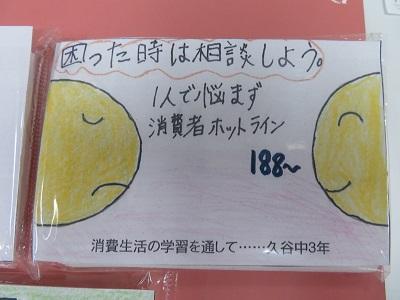 困った時は相談しよう。
1人で悩まず
消費者ホットライン
188~
消費生活の学習を通して……久谷中3年